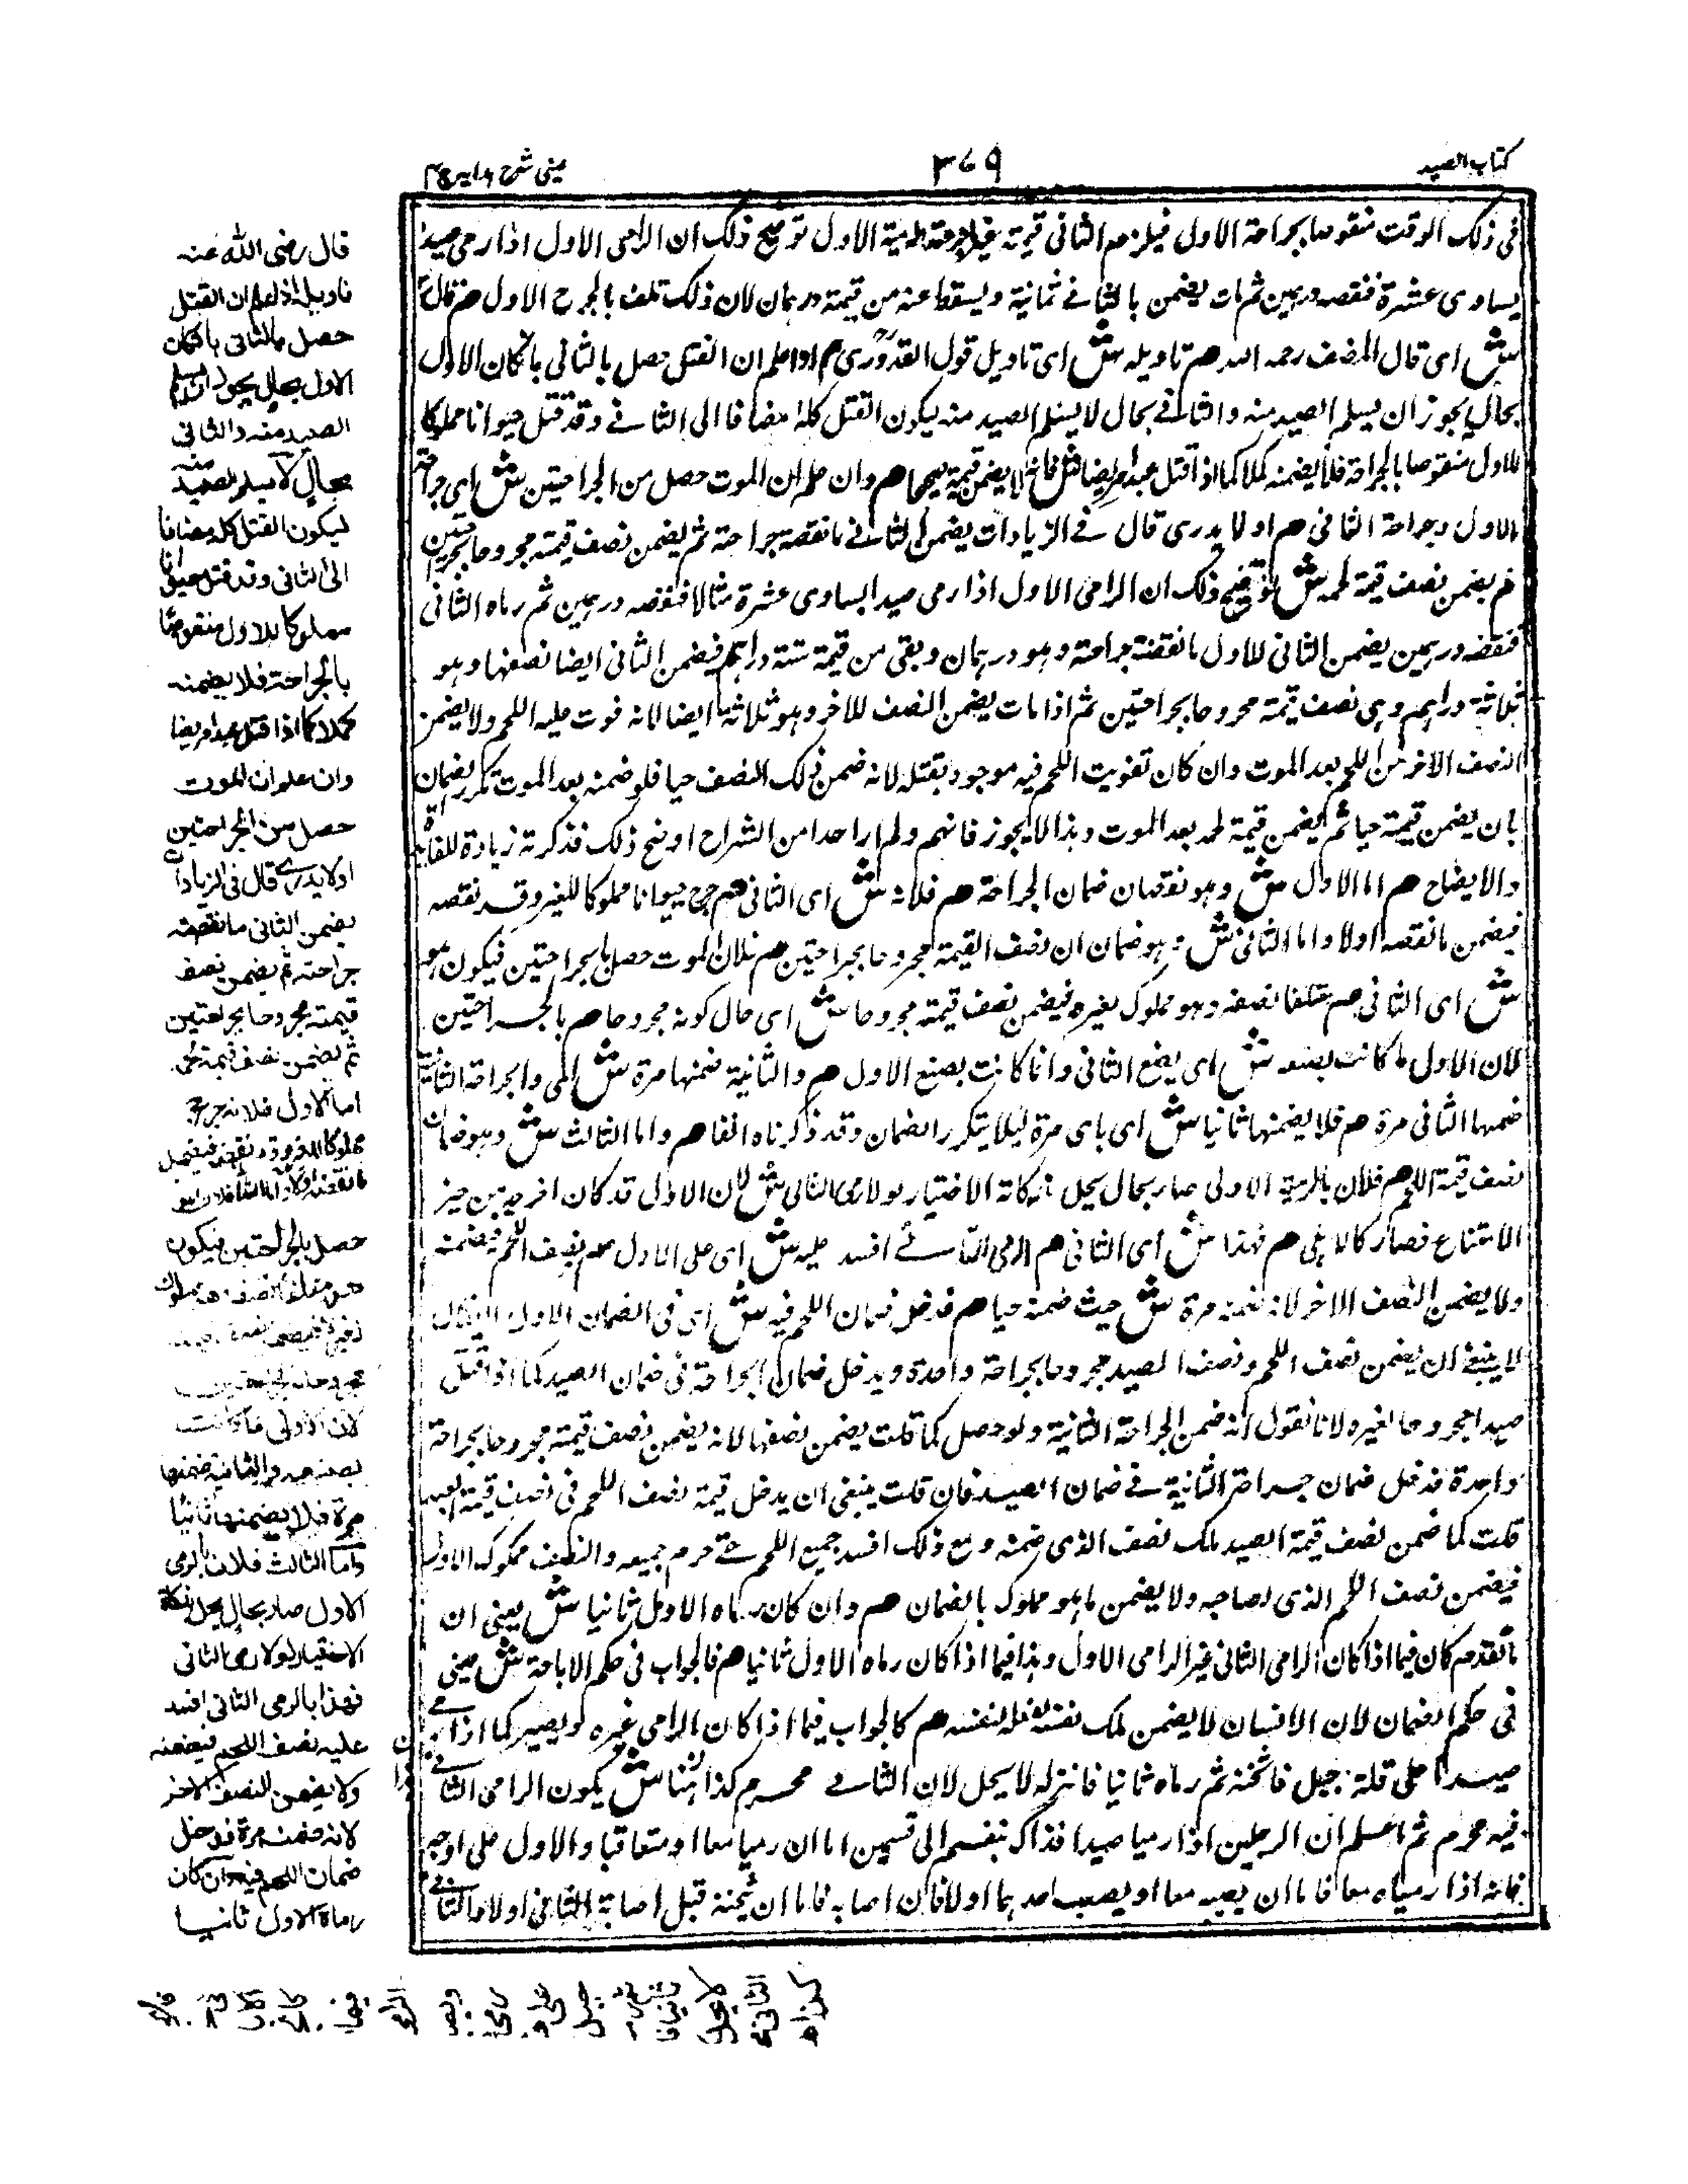 كتاب الصيد
٣٦٩
عينى شرح هدايه ج ٤
فى ذلك الوقت منقوصا بجراحة الاول فيلزمه الثانى قيمته غير ما نقصته رمية الاول توضيح ذلك ان الرامى الاول اذا رمى صيدا
يساوى عشرة فنقصه درهمين ثم مات يضمن بالثانے ثمانية ويسقط عنه من قيمته درهمان لان ذلك تلف بالجرح الاول هم قال رض
ش اى قال المصنف رحمه الله هم تاويله ش اى تاويل قول القدورى هم اذا علم ان القتل حصل بالثانى بان كان الاول
بحال يجوز ان يسلم الصيد منه والثانے بحال لا يسلم الصيد منه ليكون القتل كله مضافا الى الثانے وقد قتل حيوانا مملوكا
للاول منقوصا بالجراحة فلا يضمنه كملا كما اذا قتل عبدا مريضا ش فانه لا يضمن قيمته صحيحا هم وان علم ان الموت حصل من الجراحتين ش اى جراحة
الاول وجراحة الثانى هم او لا يدرى قال فے الزيادات يضمن الثانے ما نقصته جراحته ثم يضمن نصف قيمته مجروحا بجراحتين
ثم يضمن نصف قيمة لحمه ش توضيح ذلك ان الرامى الاول اذا رمى صيدا يساوى عشرة مثلا فنقصه درهمين ثم رماه الثانى
فنقصه درهمين يضمن الثانى للاول ما نقصته جراحته وهو درهمان وبقى من قيمته ستة دراهم فيضمن الثانى ايضا نصفها وهو
ثلاثة دراهم وهى نصف قيمته مجروحا بجراحتين ثم اذا مات يضمن النصف للاخر وهو ثلاثة ايضا لانه فوت عليه اللحم ولا يضمن
النصف الاخر من اللحم بعد الموت وان كان تفويت اللحم فيه موجود بقتله لانه ضمن ذلك النصف حيا فلو ضمنه بعد الموت تكرر الضمان
بان يضمن قيمته حيا ثم يضمن قيمة لحمه بعد الموت وهذا لا يجوز فافهم ولم ار احدا من الشراح اوضح ذلك فذكرته زيادة للفائدة
والايضاح هم اما الاول ش وهو نقصان ضمان الجراحة هم فلانه ش اى الثانى هم جرح حيوانا مملوكا للغير وقد نقصه
فيضمن ما نقصه اولا واما الثانى ش وهو ضمان ان نصف القيمة مجروحا بجراحتين هم فلان الموت حصل بالجراحتين فيكون هو
ش اى الثانى هم متلفا نصفه وهو مملوك لغيره فيضمن نصف قيمته مجروحا ش اى حال كونه مجروحا هم بالجراحتين
لان الاولى ما كانت بصنعه ش اى بصنع الثانى وانما كانت بصنع الاول هم والثانية ضمنها مرة ش اى والجراحة الثانية
ضمنها الثانى مرة هم فلا يضمنها ثانيا ش اى باى مرة ليلا يتكرر الضمان وقد ذكرناه انفا هم واما الثالث ش وهو ضمان
نصف قيمة اللحم هم فلان بالرمية الاولى صار بحال يحل بذكاة الاختيار لولا رمى الثانى ش لان الاول قد كان اخرجه من حيز
الامتناع فصار كالاهلى هم فهذا ش اى الثانى هم بالرمى الثانے افسد عليه ش اى على الاول هم نصف اللحم فيضمنه
ولا يضمن النصف الاخر لانه ضمنه مرة ش حيث ضمنه حيا هم فدخل ضمان اللحم فيه ش اى فى الضمان الاول
لا ينبغى ان يضمن نصف اللحم ونصف الصيد مجروحا بجراحة واحدة ويدخل ضمان الجراحة فى ضمان الصيد كما اذا قتل
صيدا مجروحا لغيره لانا نقول انه ضمن الجراحة الثانية ولو حصل كما قلت يضمن نصفها لانه يضمن نصف قيمته مجروحا بجراحة
واحدة فدخل ضمان جراحة الثانية فے ضمان الصيد فان قلت ينبغى ان يدخل قيمة نصف اللحم فى نصف قيمة الصيد
قلت لما ضمن نصف قيمة الصيد ملك نصف الذى ضمنه ومع ذلك افسد جميع اللحم حتے حرم جميعه والنصف مملوك للاول
فيضمن نصف اللحم الذى لصاحبه ولا يضمن ما هو مملوك بالضمان هم وان كان رماه الاول ثانيا ش يعنى ان
ما تقدم كان فيما اذا كان الرامى الثانى غير الرامى الاول وهذا فيما اذا كان رماه الاول ثانيا هم فالجواب فى حكم الاباحة ش يعنى
فى حكم الضمان لان الانسان لا يضمن ملك نفسه بفعله لنفسه هم كالجواب فيما اذا كان الرامى غيره ويصير كما اذا رمے
صيدا على قلة جبل فاثخنه ثم رماه ثانيا فانزله لا يحل لان الثانے محرم كذا هنا ش يكون الرامى الثانے
فيه محرم ثم اعلم ان الرجلين اذا رميا صيدا فذاك ينقسم الى قسمين اما ان رميا معا او متعاقبا والاول على اوجه
لانه اذا رمياه معا فاما ان يصيبه معا او يصيب احدهما اولا فان اصابه فاما ان يثخنه قبل اصابة الثانى اولا واما الثانے
قال رضى الله عنه
تاويله اذا علم ان القتل
حصل بالثانى بان كان
الاول بحال يجوز ان يسلم
الصيد منه والثانى
بحال لا يسلم الصيد منه
ليكون القتل كله مضافا
الى الثانى وقد قتل حيوانا
مملوكا للاول منقوصا
بالجراحة فلا يضمنه
كملا كما اذا قتل عبدا مريضا
وان علم ان الموت
حصل من الجراحتين
او لا يدرے قال فى الزيادات
يضمن الثانى ما نقصته
جراحته ثم يضمن نصف
قيمته مجروحا بجراحتين
ثم يضمن نصف قيمة لحمه
اما الاول فلانه جرح
مملوكا للغير وقد نقصه فيضمن
ما نقصه اولا واما الثانى فلان الموت
حصل بالجراحتين فيكون
هو متلفا نصفه وهو مملوك
لغيره فيضمن نصف قيمته
مجروحا بالجراحتين
لان الاولى ما كانت
بصنعه والثانية ضمنها
مرة فلا يضمنها ثانيا
واما الثالث فلان بالرمى
الاول صار بحال يحل بذكاة
الاختيار لولا رمى الثانى
فهذا بالرمى الثانى افسد
عليه نصف اللحم فيضمنه
ولا يضمن النصف الاخر
لانه ضمنه مرة فدخل
ضمان اللحم فيه وان كان
رماه الاول ثانيا